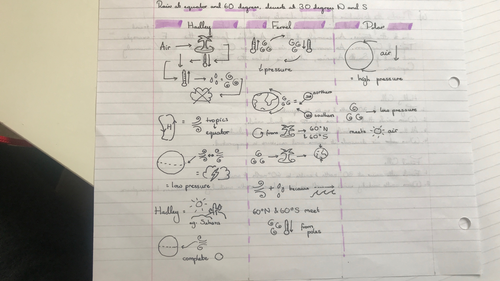 Rises at equator and 60 degrees, deserts at 30 degrees N and S
Hadley
Ferrel
Polar
Air
air
↓ pressure
= high pressure
H
= tropics
equator
northern
southern
from
→ 60°N
& 60°S
→ low pressure
meets air
= low pressure
+ because
Hadley =
eg. Sahara
60°N & 60°S meet
from
poles
complete